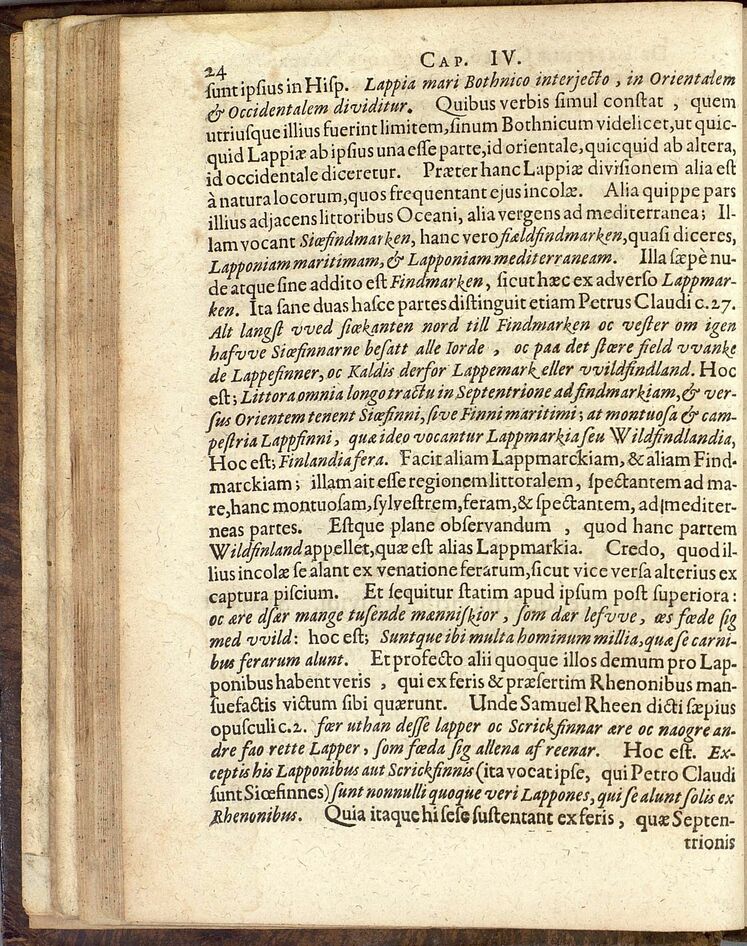 24
CAP. IV.
ſunt ipſius in Hiſp. Lappia mari Bothnico interjecto, in Orientalem
& Occidentalem dividitur. Quibus verbis ſimul conſtat, quem
utriuſque illius fuerint limitem, ſinum Bothnicum videlicet, ut quic-
quid Lappiæ ab ipſius una eſſe parte, id orientale, quicquid ab altera,
id occidentale diceretur. Præter hanc Lappiæ diviſionem alia eſt
à natura locorum, quos frequentant ejus incolæ. Alia quippe pars
illius adjacens littoribus Oceani, alia vergens ad mediterranea; Il-
lam vocant Siœfindmarken, hanc vero fiældfindmarken, quaſi diceres,
Lapponiam maritimam, & Lapponiam mediterraneam. Illa ſæpè nu-
de atque ſine addito eſt Findmarken, ſicut hæc ex adverſo Lappmar-
ken. Ita ſane duas haſce partes diſtinguit etiam Petrus Claudi c. 27.
Alt langſt vved ſiœkanten nord till Findmarken oc veſter om igen
hafvve Siœfinnarne beſatt alle Iorde, oc paa det ſtœre field vvanke
de Lappefinner, oc Kaldis derfor Lappemark eller vvildfindland. Hoc
eſt; Littora omnia longo tractu in Septentrione ad findmarkiam, & ver-
ſus Orientem tenent Siœfinni, ſive Finni maritimi; at montuoſa & cam-
peſtria Lappfinni, quæ ideo vocantur Lappmarkia ſeu Wildfindlandia,
Hoc eſt; Finlandia fera. Facit aliam Lappmarckiam, & aliam Find-
marckiam; illam ait eſſe regionem littoralem, ſpectantem ad ma-
re, hanc montuoſam, ſylveſtrem, feram, & ſpectantem, ad mediter-
neas partes. Eſtque plane obſervandum, quod hanc partem
Wildfinland appellet, quæ eſt alias Lappmarkia. Credo, quod il-
lius incolæ ſe alant ex venatione ferarum, ſicut vice verſa alterius ex
captura piſcium. Et ſequitur ſtatim apud ipſum poſt ſuperiora:
oc ære dſær mange tuſende mænniſkior, ſom dær lefvve, œs fœde ſig
med vvild: hoc eſt; Suntque ibi multa hominum millia, quæ ſe carni-
bus ferarum alunt. Et profecto alii quoque illos demum pro Lap-
ponibus habent veris, qui ex feris & præſertim Rhenonibus man-
ſuefactis victum ſibi quærunt. Unde Samuel Rheen dicti ſæpius
opuſculi c. 2. fœr uthan deſſe lapper oc Scrickfinnar œre oc naogre an-
dre ſao rette Lapper, ſom fœda ſig allena af reenar. Hoc eſt. Ex-
ceptis his Lapponibus aut Scrickfinnis (ita vocat ipſe, qui Petro Claudi
ſunt Siœfinnes) ſunt nonnulli quoque veri Lappones, qui ſe alunt ſolis ex
Rhenonibus. Quia itaque hi ſeſe ſuſtentant ex feris, quæ Septen-
trionis